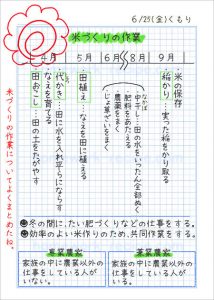 6/25(金)くもり
米づくりの作業
4月
5月
6月
8月
9月
田おこし…田の土をたがやす
なえを育てる
代かき…田に水を入れ平らにならす
田植え…なえを田に植える
じょ草ざいをまく
農薬をまく
肥料をあたえる
なかぼし
中干し…田の水をいったん全部ぬく
稲かり…実った稲をかり取る
米の保存
●冬の間に、たい肥づくりなどの仕事をする。
●効率のよい米作りのため、共同作業をする。
専業農家
家族の中に農業以外の
仕事をしている人が
いない。
兼業農家
家族の中に農業以外の
仕事をしている人が
いる。
米づくりの作業についてよくまとめたね。